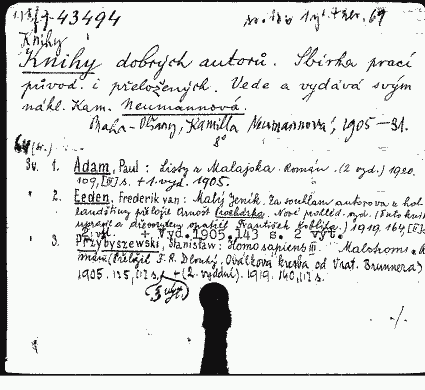 43494
Knihy
Knihy dobrých autorů. Sbírka prací
původ. i přeložených. Vede a vydává svým
nákl. Kam. Neumannová.
Praha-Olšany, Kamilla Neumannová, 1905-31.
8°
Sv. 1. Adam, Paul: Listy z Malajska. Román. (2 vyd.) 1920.
109, [III] s. + 1. vyd. 1905.
" 2. Eeden, Frederik van: Malý Jeník. Za souhlasu autorova z hol-
landštiny přeložil Arnošt Procházka. Nové prohléd. vyd. (Tuto knihu
upravil a dřevoryty opatřil František Kobliha.) 1919. 164, [II] s.
+ vyd. 1905. 143 s. 2 vyt.
" 3. Przybyszewski, Stanislaw: Homo sapiens III.
(Přeložil F. R. Dlouhý. Obálková kresba od Vrat. Brunnera)
1905. 125, [1] s. + (2. vydání). 1919. 140, [1] s.